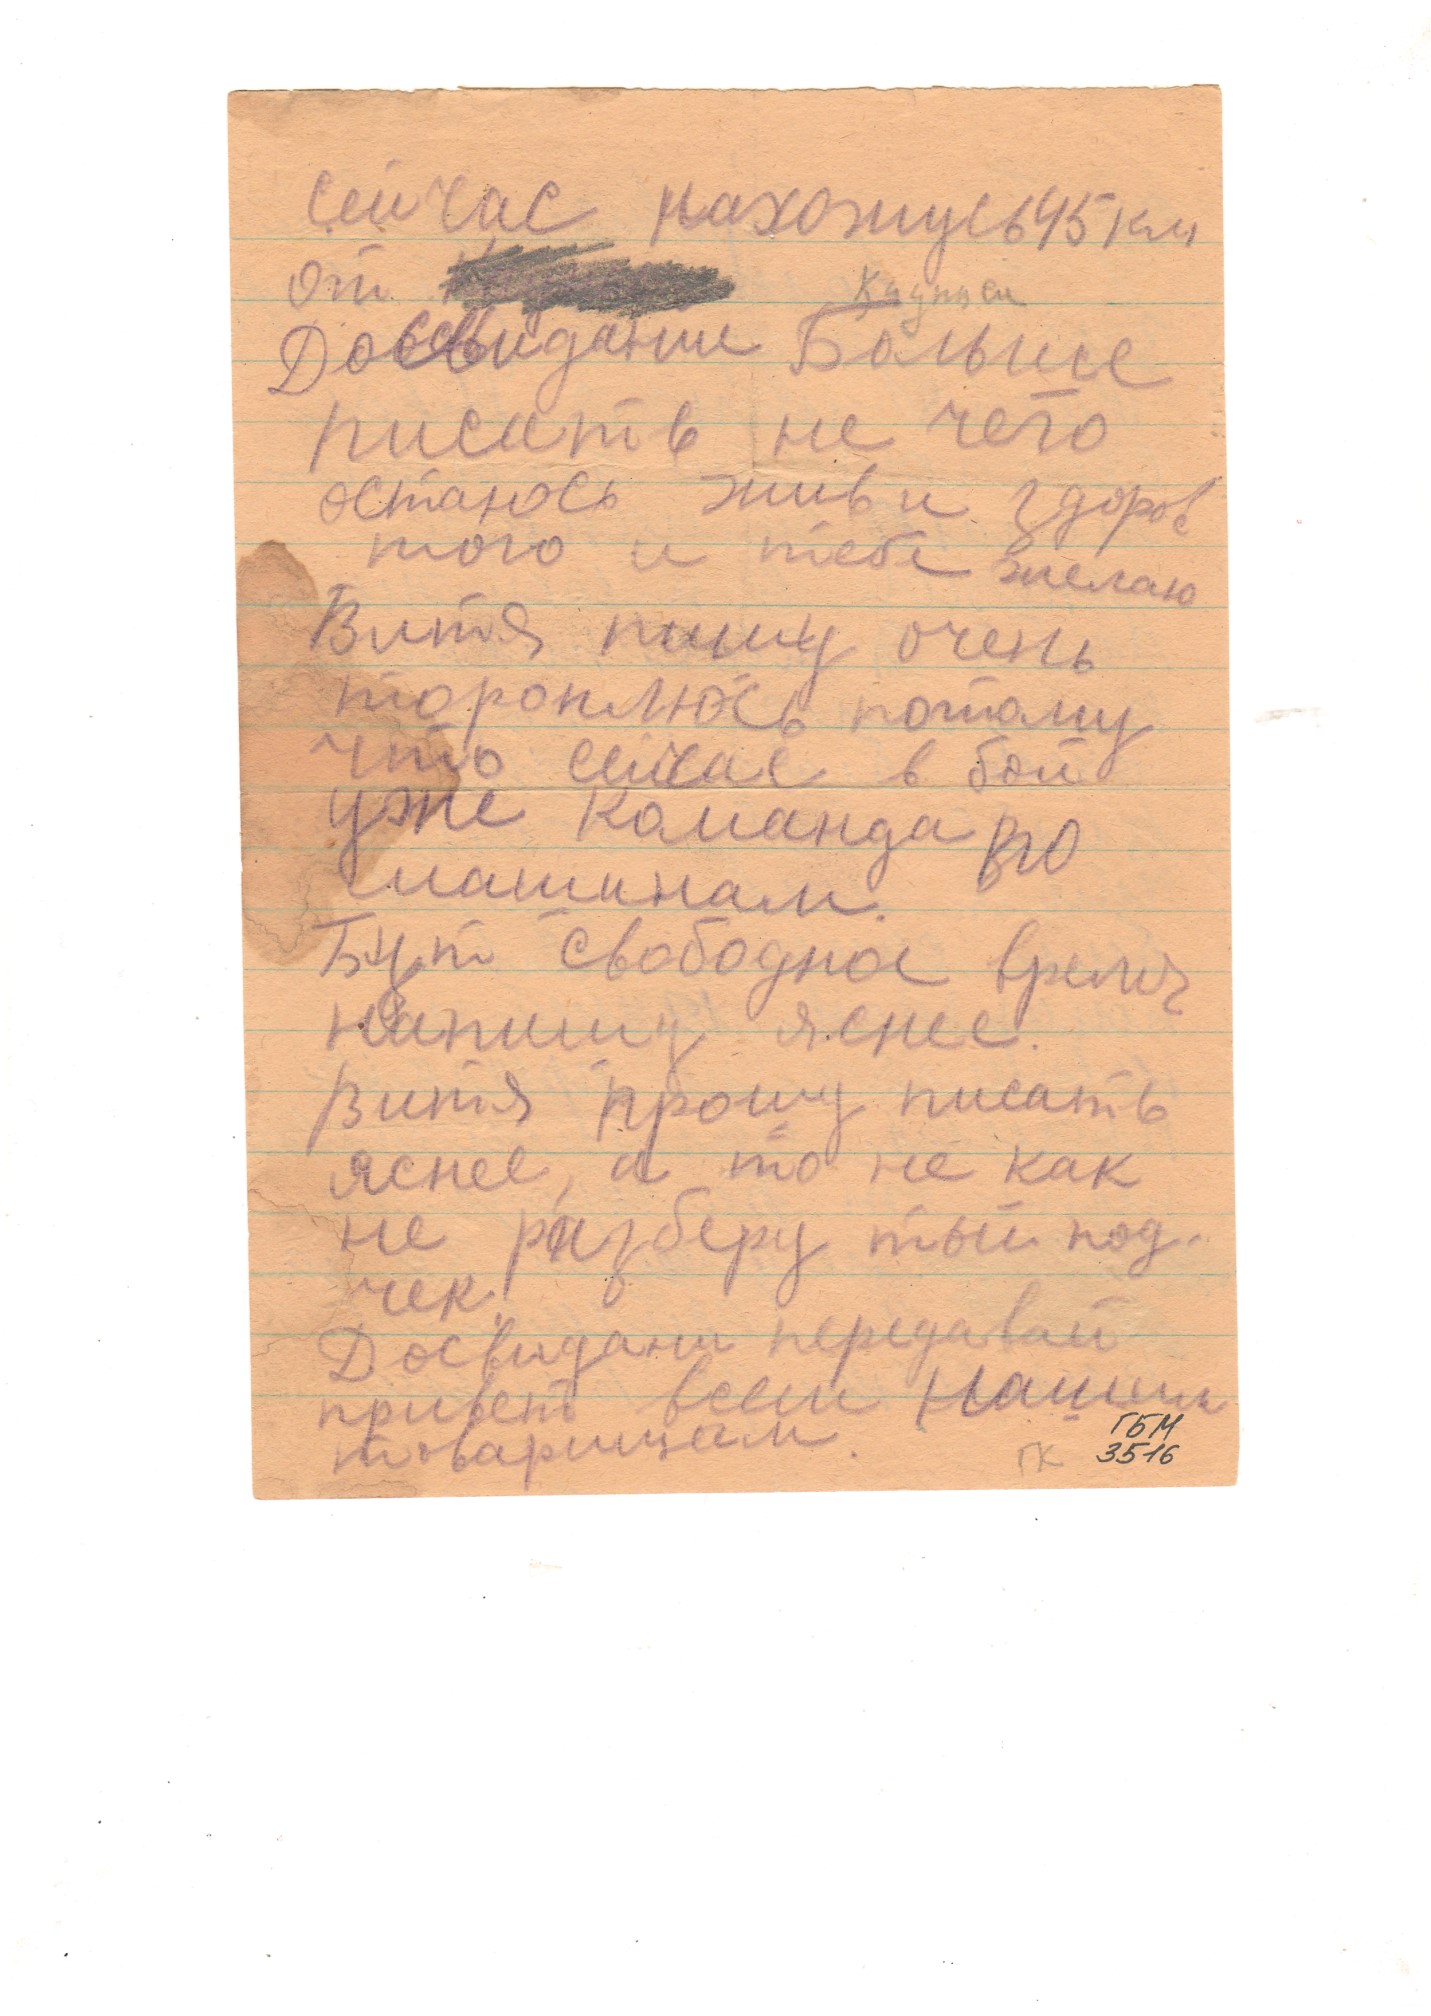 сейчас нахожусь 45 км
от
Досвидание Больше
писать не чего
остаюсь жив и здоров
того и тебе желаю
Витя пишу очень
тороплюсь потому
что сейчас в бой
уже команда по
машинам.
Бут свободное время
напишу яснее.
Витя прошу писать
яснее, а то не как
не разберу твой под-
чек.
Досвидани передавай
привет всем нашим
товарищам.
ГБМ
ГК 3516